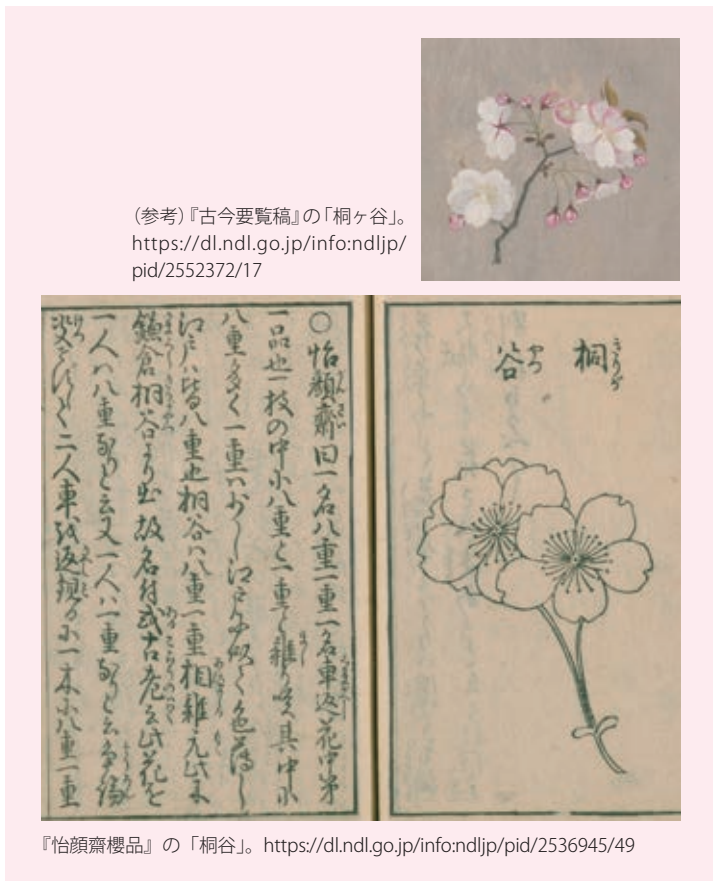 (参考)『古今要覧稿』の「桐ヶ谷」。
https://dl.ndl.go.jp/info:ndljp/
pid/2552372/17
桐谷
〇怡顔齋曰一名八重一重一名車返花中第
一品也一枝の中に八重と一重と雜り咲其中に
八重多く一重ハ少し江戸に似て色薄し
江戸ハ皆八重也桐谷ハ八重一重相雜元此木
鎌倉桐谷より出故名付或古老云此花を
一人ハ八重なりと云又一人ハ一重なりと云争論
二人車を返視るに一木に八重一重
『怡顔齋櫻品』の「桐谷」。https://dl.ndl.go.jp/info:ndljp/pid/2536945/49